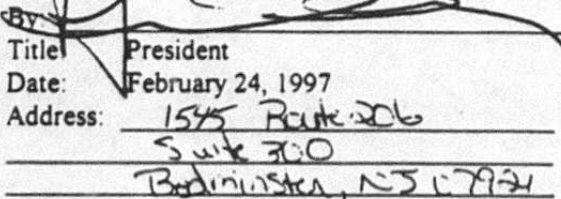 By
Title President
Date: February 24, 1997
Address: 1545 Route 206
Suite 300
Bedminster, NJ 07921